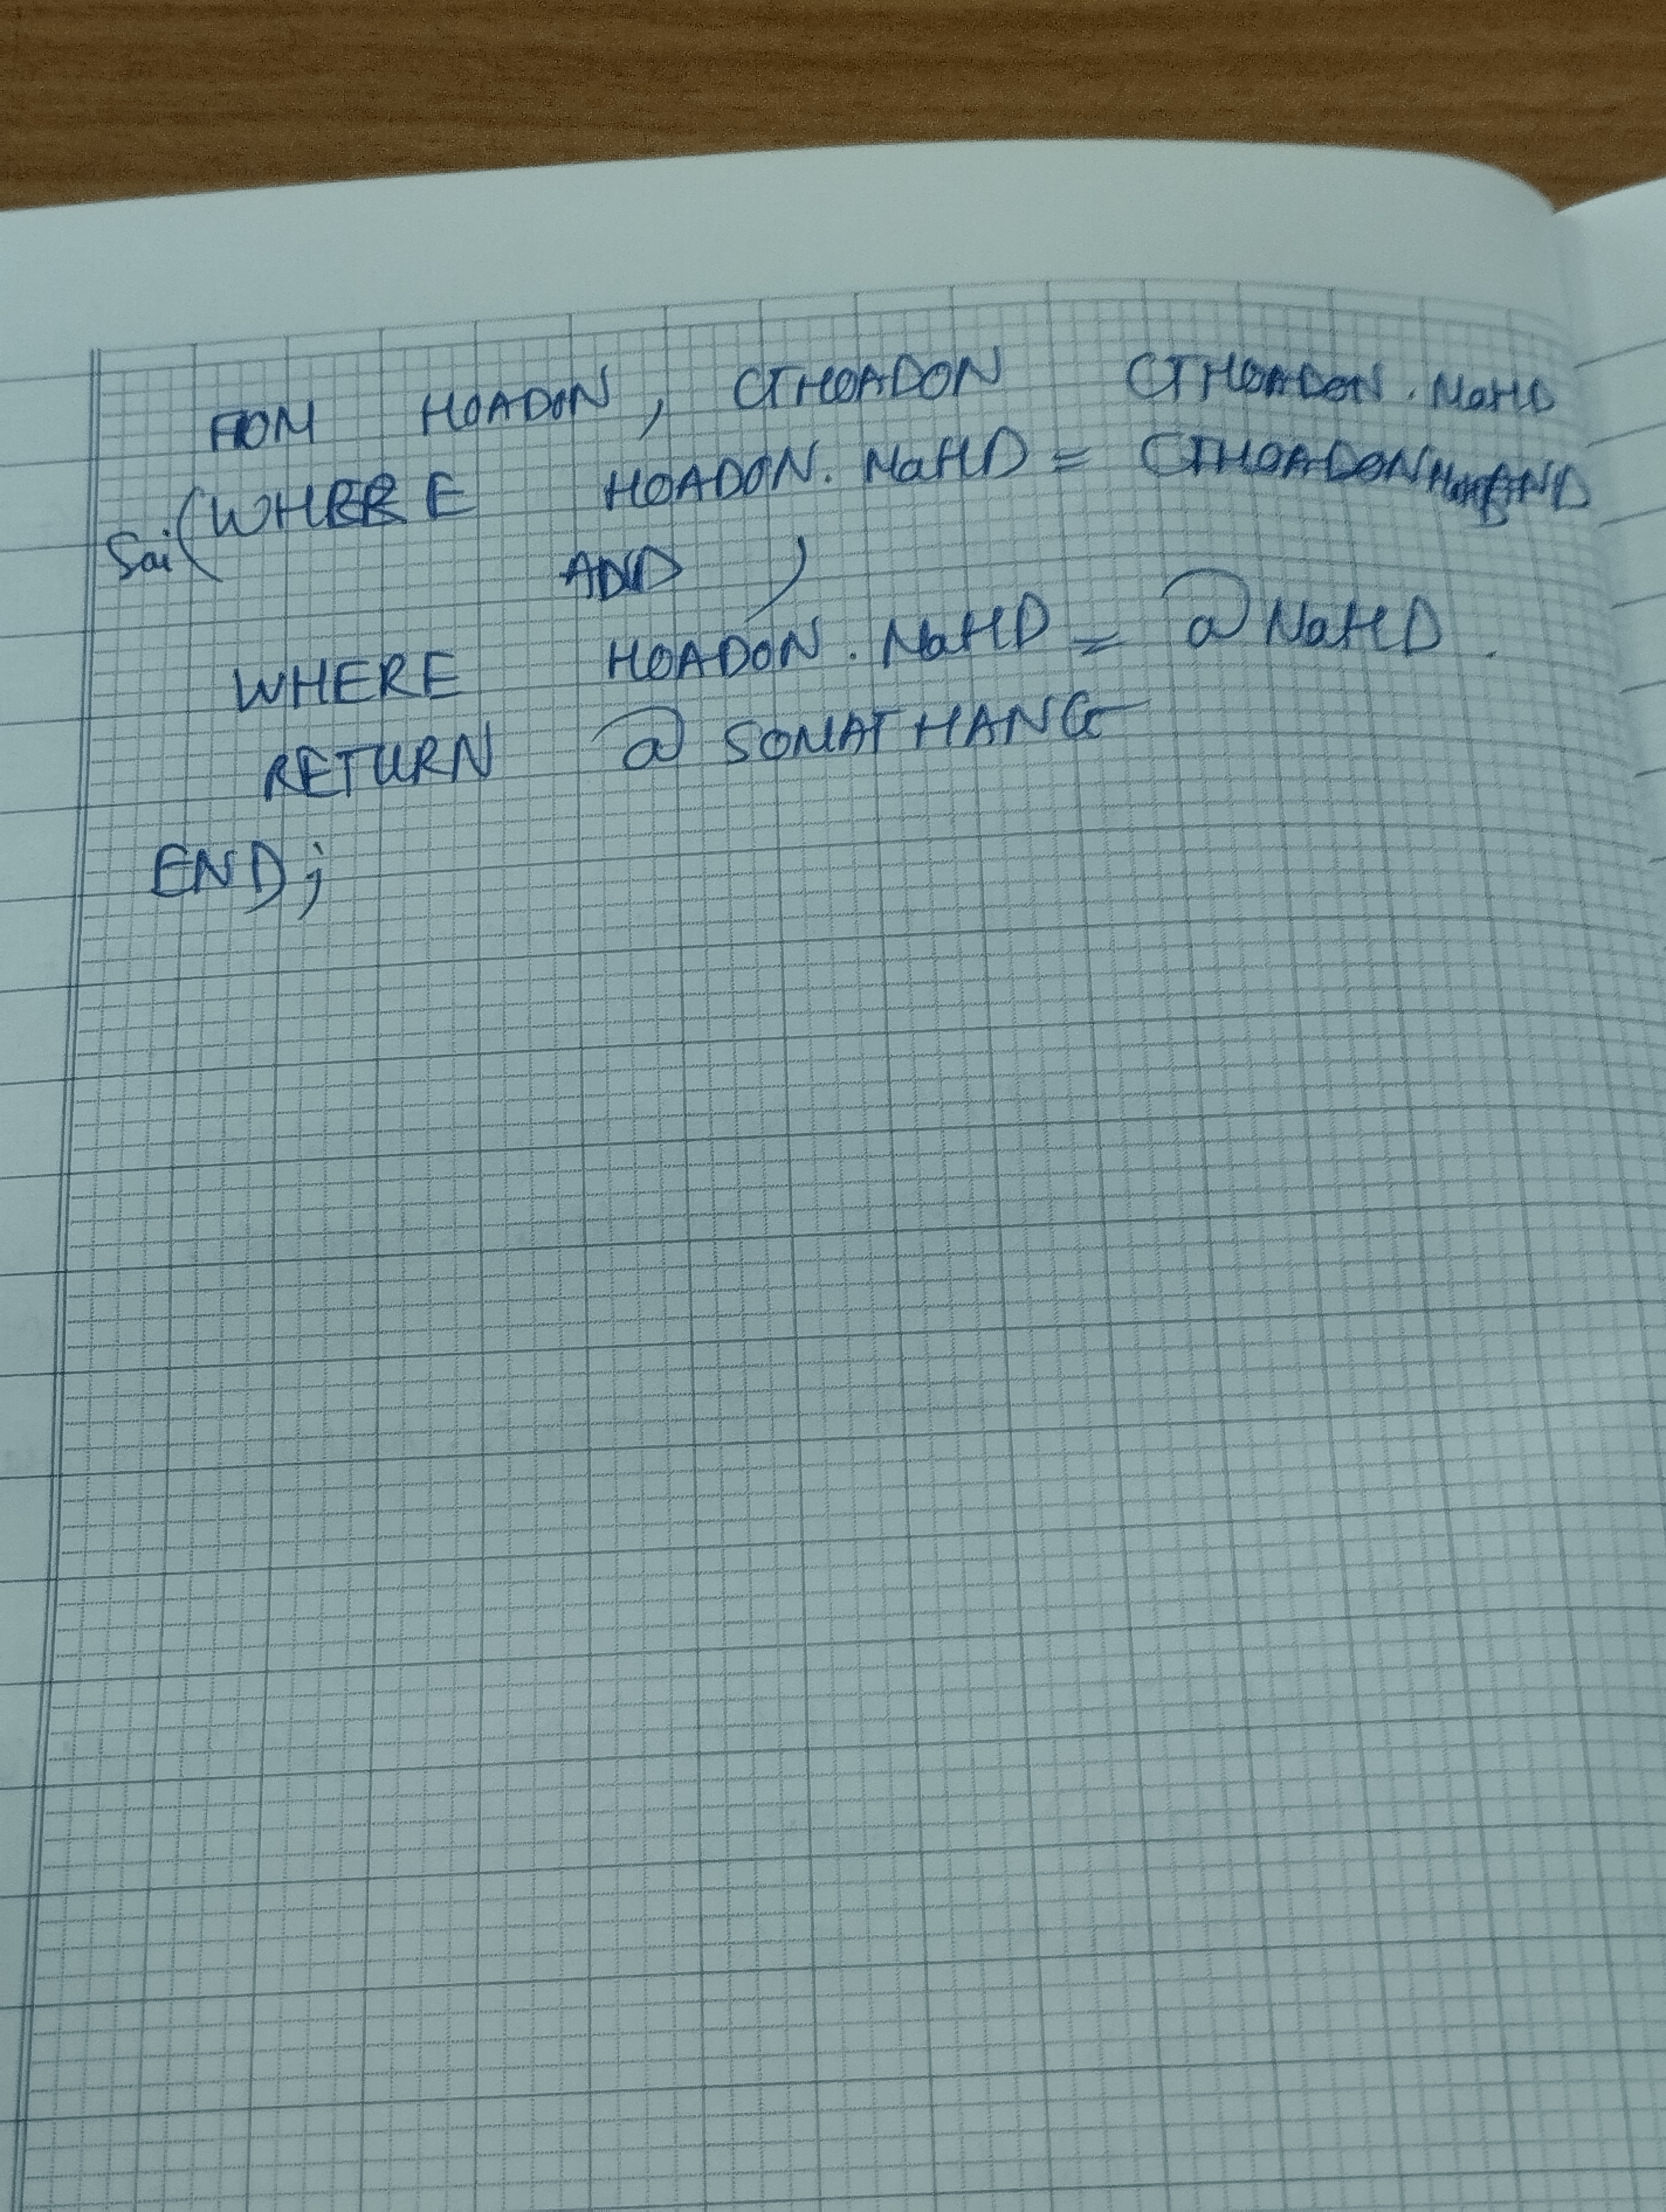 FROM HOADON, CTHOADON CTHOADON.MaHD
Sai (WHERE HOADON.MaHD = CTHOADON AND
AND )
WHERE HOADON.MaHD = @MaHD.
RETURN @SOMATHANG
END;